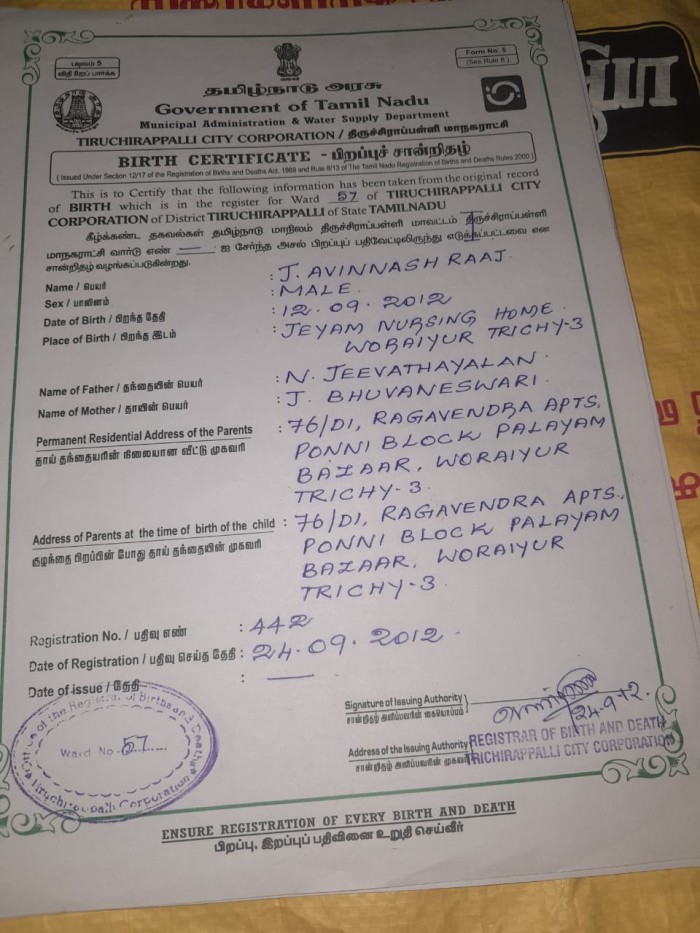 படிவம் 5
விதி 8ஐப் பார்க்க
Form No. 5
(See Rule 8)
தமிழ்நாடு அரசு
Government of Tamil Nadu
Municipal Administration & Water Supply Department
TIRUCHIRAPPALLI CITY CORPORATION / திருச்சிராப்பள்ளி மாநகராட்சி
BIRTH CERTIFICATE - பிறப்புச் சான்றிதழ்
(Issued Under Section 12/17 of the Registration of Births and Deaths Act, 1969 and Rule 8/13 of The Tamil Nadu Registration of Births and Deaths Rules 2000)
This is to Certify that the following information has been taken from the original record
of BIRTH which is in the register for Ward 57 of TIRUCHIRAPPALLI CITY
CORPORATION of District TIRUCHIRAPPALLI of State TAMILNADU
கீழ்க்கண்ட தகவல்கள் தமிழ்நாடு மாநிலம் திருச்சிராப்பள்ளி மாவட்டம் திருச்சிராப்பள்ளி
மாநகராட்சி வார்டு எண் — ஐ சேர்ந்த அசல் பிறப்புப் பதிவேட்டிலிருந்து எடுக்கப்பட்டவை என
சான்றிதழ் வழங்கப்படுகின்றது.
Name / பெயர் : J. AVINNASH RAAJ.
Sex / பாலினம் : MALE.
Date of Birth / பிறந்த தேதி : 12.09.2012
Place of Birth / பிறந்த இடம் : JEYAM NURSING HOME.
WORAIYUR TRICHY-3
Name of Father / தந்தையின் பெயர் : N. JEEVATHAYALAN.
Name of Mother / தாயின் பெயர் : J. BHUVANESWARI.
Permanent Residential Address of the Parents : 76/D1, RAGAVENDRA APTS,
தாய் தந்தையரின் நிலையான வீட்டு முகவரி PONNI BLOCK PALAYAM
BAZAAR, WORAIYUR
TRICHY-3.
Address of Parents at the time of birth of the child : 76/D1, RAGAVENDRA APTS.,
குழந்தை பிறப்பின் போது தாய் தந்தையின் முகவரி PONNI BLOCK PALAYAM
BAZAAR, WORAIYUR
TRICHY-3.
Registration No. / பதிவு எண் : 442
Date of Registration / பதிவு செய்த தேதி : 24.09.2012.
Date of issue / தேதி : —
Signature of Issuing Authority
சான்றிதழ் அளிப்பவரின் கையொப்பம்
24-9-12.
Address of the Issuing Authority
சான்றிதழ் அளிப்பவரின் முகவரி
REGISTRAR OF BIRTH AND DEATH
TRICHIRAPPALLI CITY CORPORATION
Office of the Registrar of Births and Deaths
Ward No. 57
Tiruchirappalli Corporation
ENSURE REGISTRATION OF EVERY BIRTH AND DEATH
பிறப்பு, இறப்புப் பதிவினை உறுதி செய்வீர்